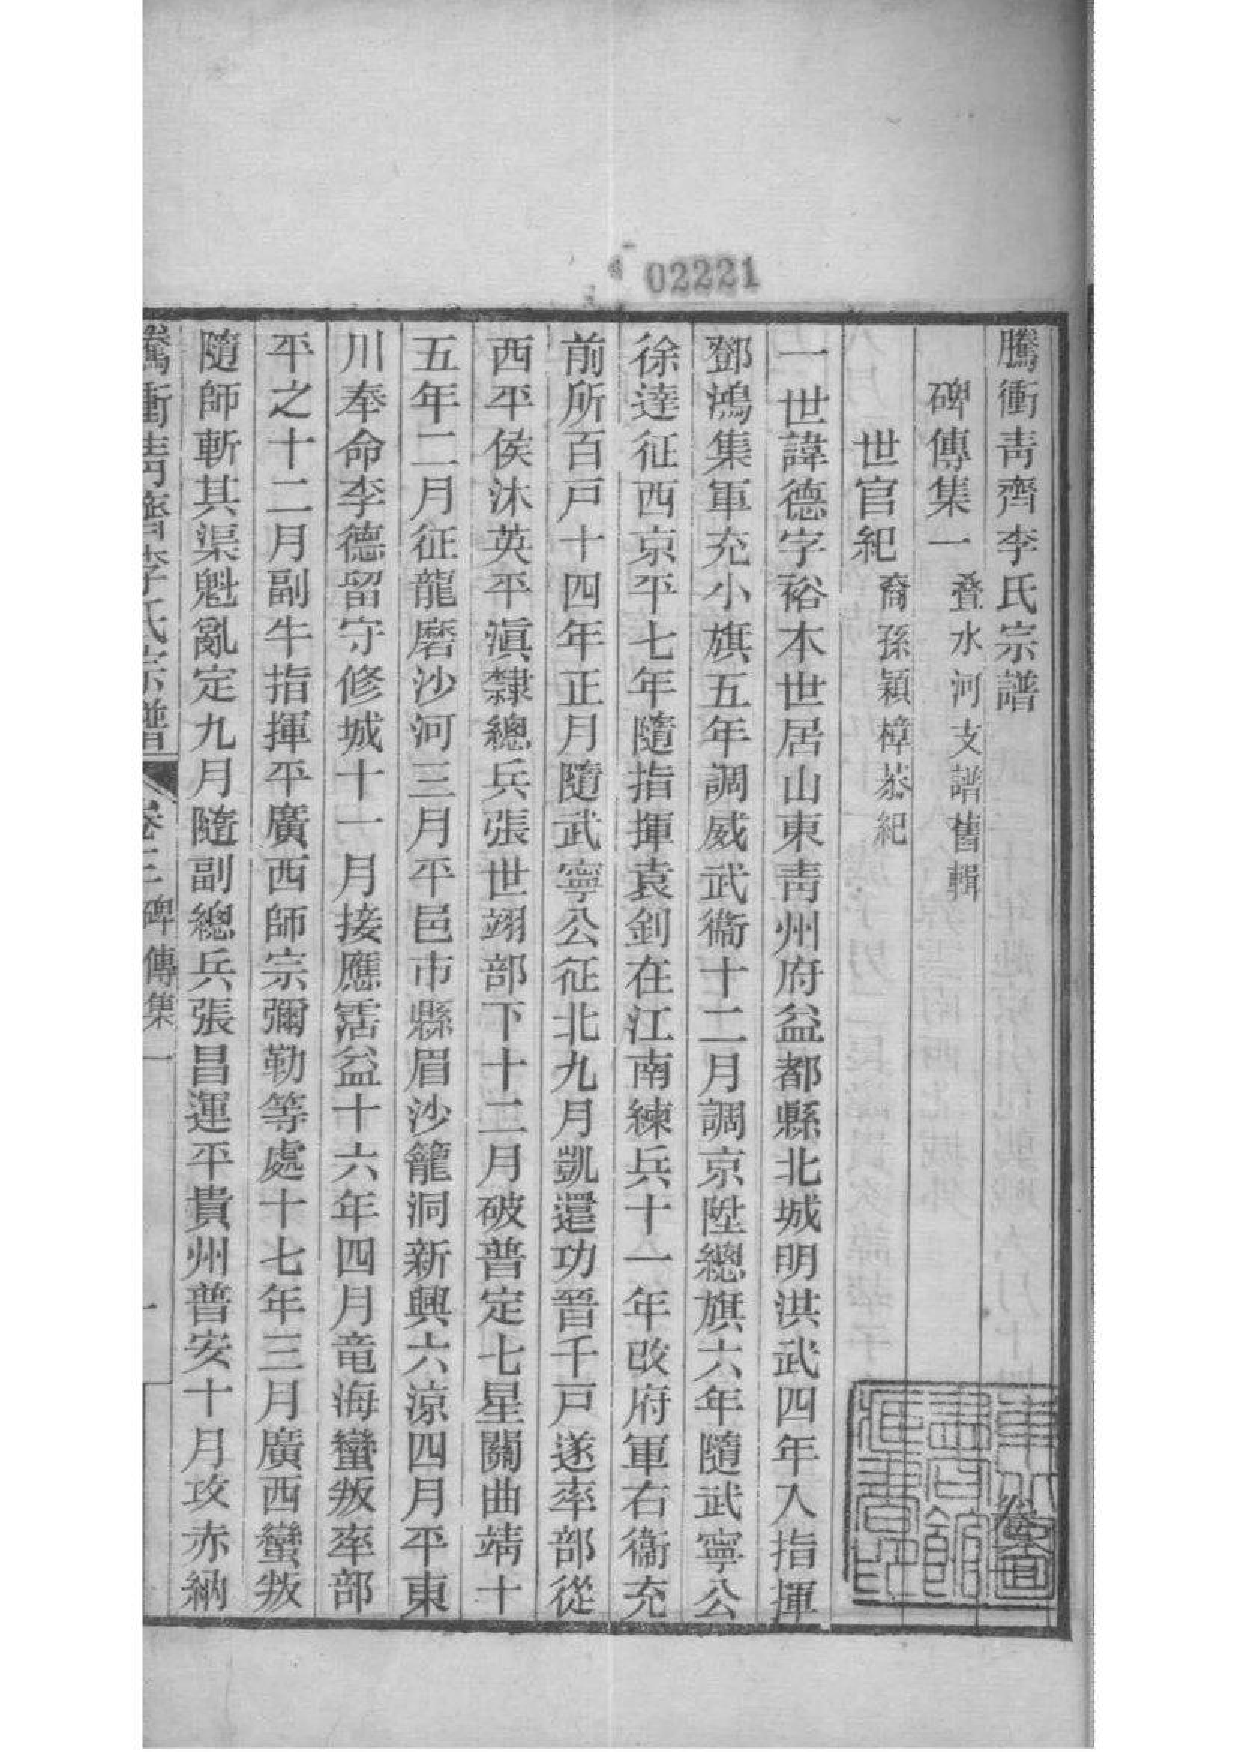 02221
騰衝靑齊李氏宗譜
碑傳集一 叠水河支譜舊輯
世官紀 裔孫穎樟恭紀
一世諱德字裕本世居山東靑州府益都縣北城明洪武四年入指揮
鄧鴻集軍充小旗五年調威武衞十二月調京陞總旗六年隨武寧公
徐達征西京平七年隨指揮袁釗在江南練兵十一年改府軍右衞充
前所百戶十四年正月隨武寧公征北九月凱還功晉千戶遂率部從
西平侯沐英平滇隸總兵張世翊部下十二月破普定七星關曲靖十
五年二月征龍磨沙河三月平邑市縣眉沙籠洞新興六涼四月平東
川奉命李德留守修城十一月接應霑益十六年四月竜海蠻叛率部
平之十二月副牛指揮平廣西師宗彌勒等處十七年三月廣西蠻叛
隨師斬其渠魁亂定九月隨副總兵張昌運平貴州普安十月攻赤納
騰衝靑齊李氏宗譜 卷三碑傳集一 一